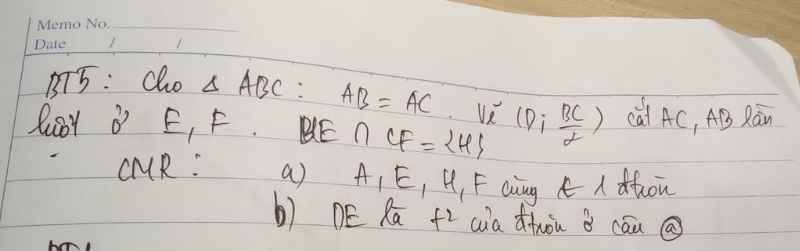 Memo No.
Date / /
BT5: Cho Δ ABC: AB = AC. Vẽ (D; BC/2) cắt AC, AB lần
lượt ở E, F. BE ∩ CF = {H}
CMR: a) A, E, H, F cùng ∈ 1 đtròn
b) DE là t² của đtròn ở câu ⓐ